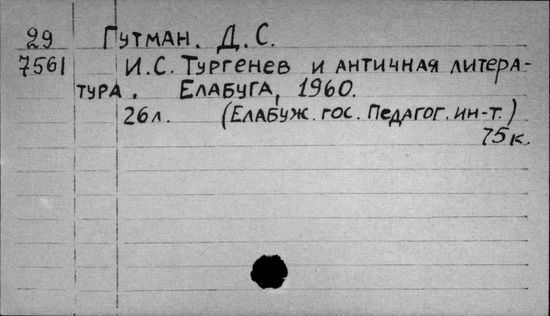 29 Гутман. Д.С.
7561 И.С. Тургенев и античная литера-
тура. Елабуга, 1960.
26л. (Елабуж. гос. Педагог. ин-т.)
75к.